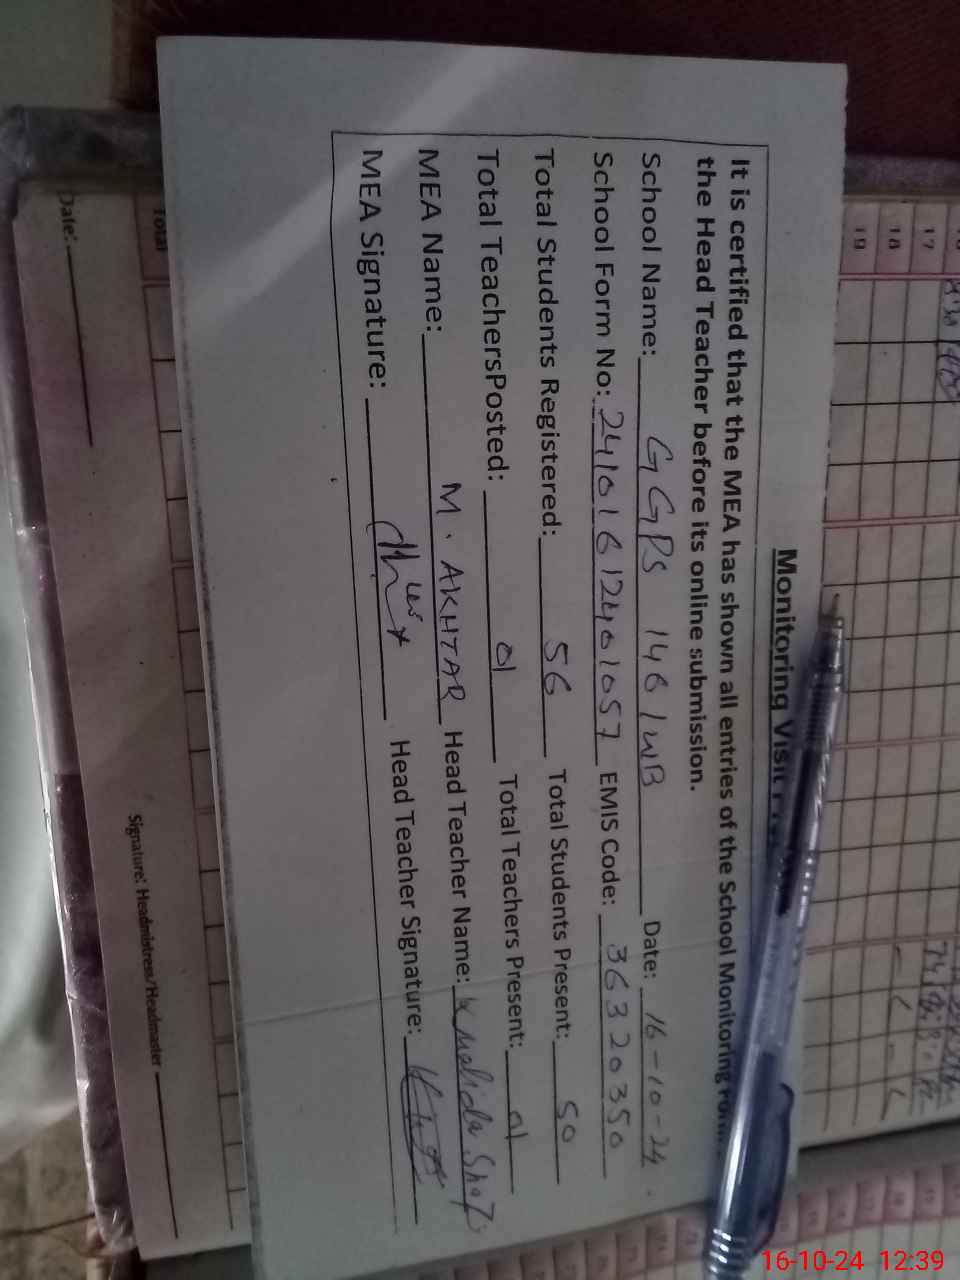 Monitoring Visit
It is certified that the MEA has shown all entries of the School Monitoring
the Head Teacher before its online submission.
School Name: GGPS 146/WB Date: 16-10-24
School Form No: 24101612401057 EMIS Code: 36320350
Total Students Registered: 56 Total Students Present: 50
Total TeachersPosted: 01 Total Teachers Present: 01
MEA Name: M. AKHTAR Head Teacher Name: Khalida
MEA Signature: Head Teacher Signature:
17
18
19
Total
Date:
Signature: Headmistress/Headmaster
16-10-24 12:39